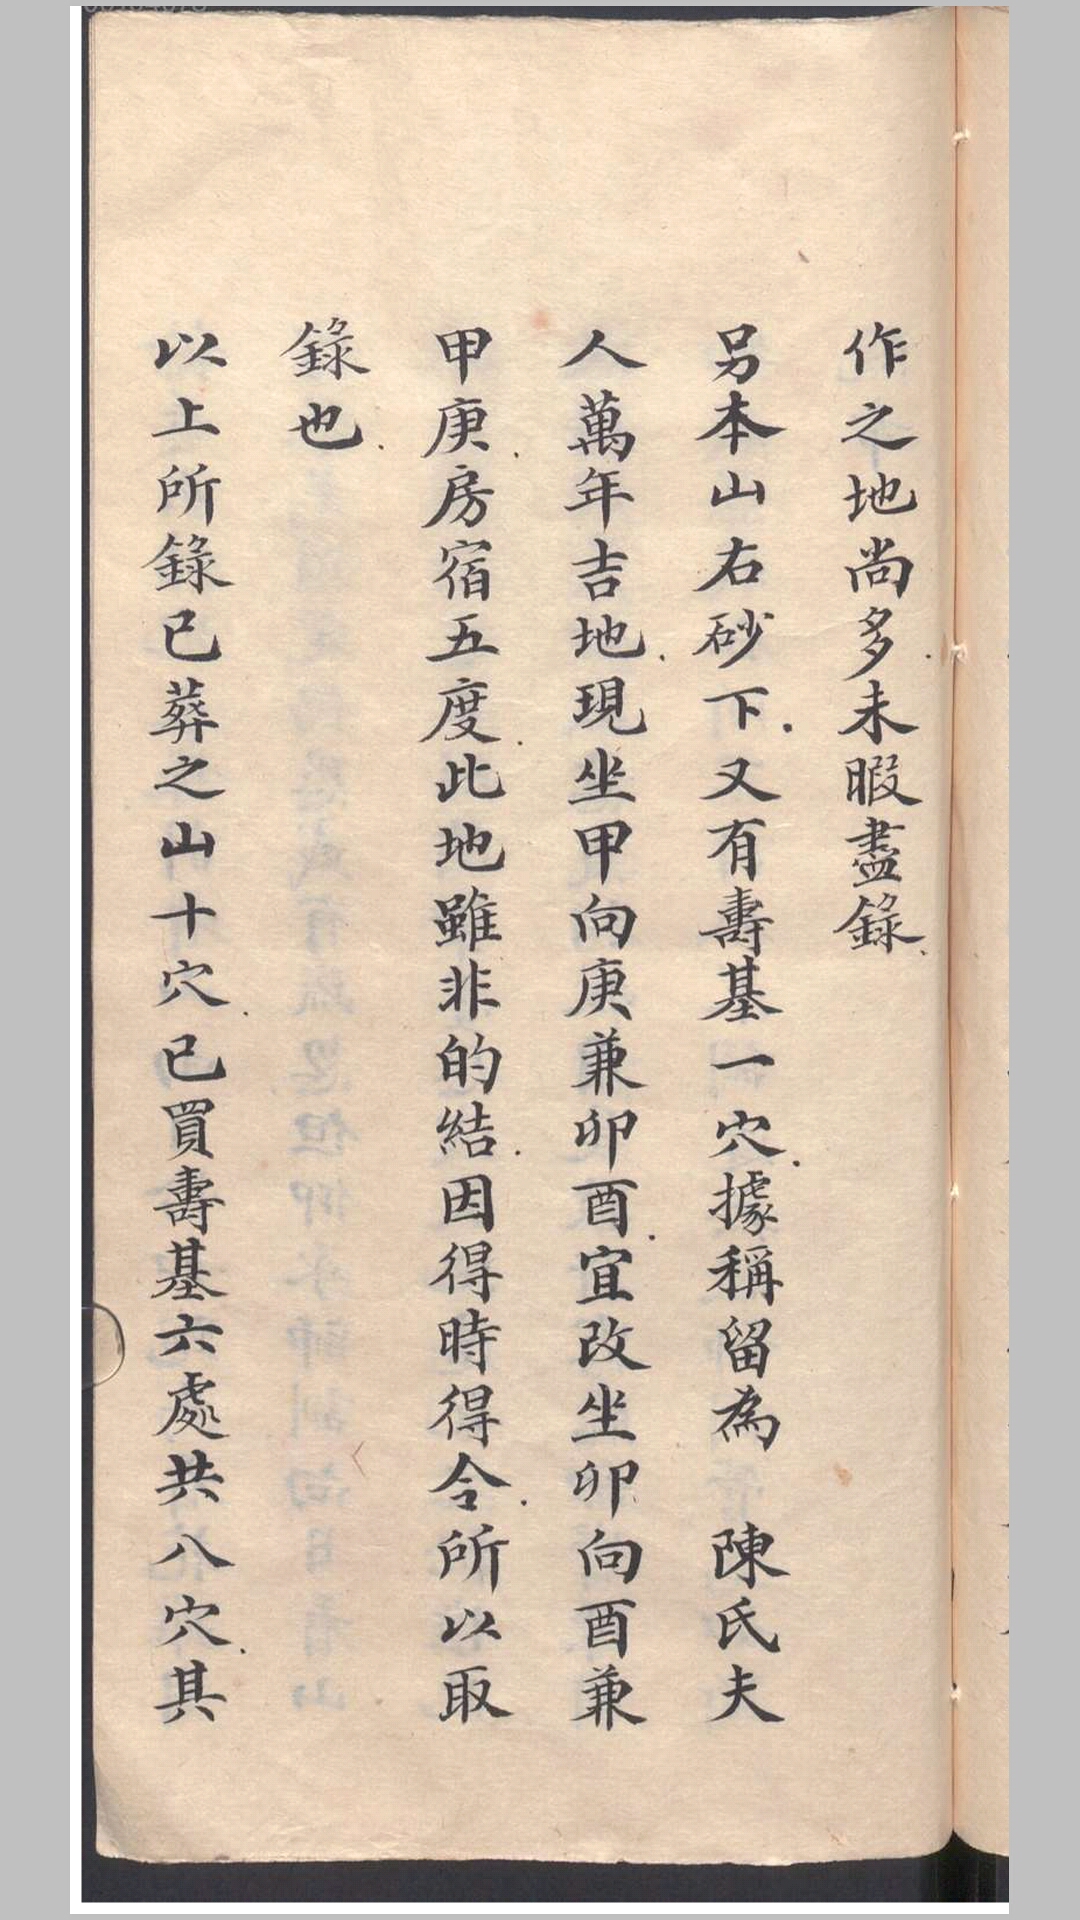 作之地尚多.未暇盡錄.
另本山右砂下.又有壽基一穴.據稱留為 陳氏夫
人萬年吉地.現坐甲向庚兼卯酉.宜改坐卯向酉兼
甲庚.房宿五度.此地雖非的結.因得時得令.所以取
錄也.
以上所錄已葬之山十穴.已買壽基六處共八穴.其